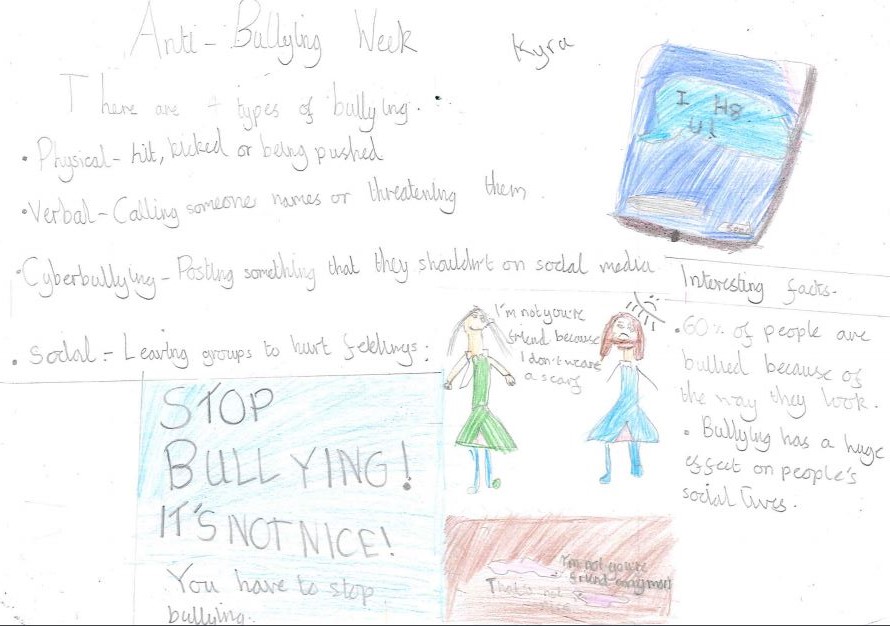 Anti-Bullying Week
Kyra
There are 4 types of bullying.
• Physical - hit, kicked or being pushed
• Verbal - Calling someone names or threatening them.
• Cyberbullying - Posting something that they shouldn't on social media.
• Social - Leaving groups to hurt feelings:
I H8
U!
send
Interesting facts.
• 60% of people are
bullied because of
the way they look.
• Bullying has a huge
effect on people's
social lives.
I'm not you're
friend because
I don't weare
a scarf
STOP
BULLYING!
IT'S NOT NICE!
You have to stop
bullying.
I'm not you're
friend anymore
That's not
nice